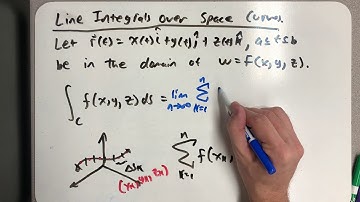 Line Integrals over Space Curves.
Let r⃗(t) = x(t)î + y(t)ĵ + z(t)k̂, a≤t≤b
be in the domain of w=f(x,y,z).
∫_C f(x,y,z)ds = lim_{n→∞} Σ_{k=1}^{n}
Δs_k
(x_k, y_k, z_k)
Σ_{k=1}^{n} f(x_k,